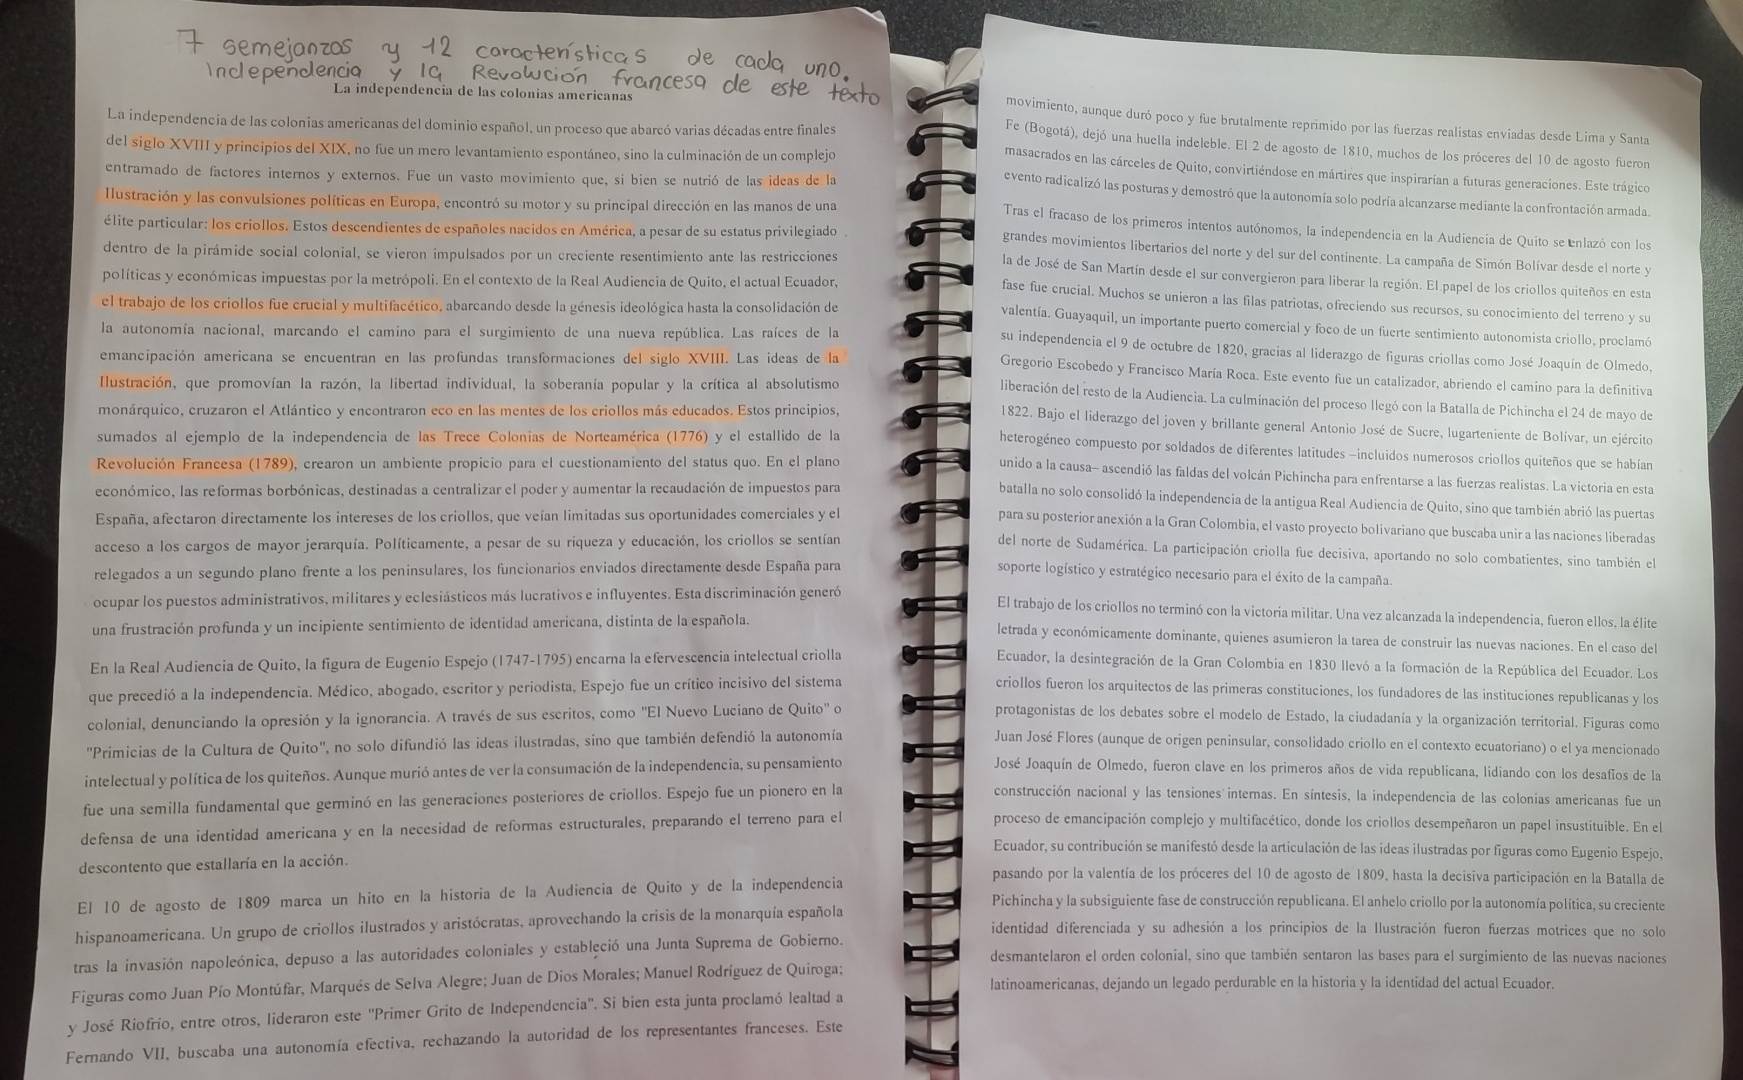 7 semejanzas y 12 características de cada uno.
Independencia y la Revolución francesa de este texto
La independencia de las colonias americanas
La independencia de las colonias americanas del dominio español, un proceso que abarcó varias décadas entre finales
del siglo XVIII y principios del XIX, no fue un mero levantamiento espontáneo, sino la culminación de un complejo
entramado de factores internos y externos. Fue un vasto movimiento que, si bien se nutrió de las ideas de la
Ilustración y las convulsiones políticas en Europa, encontró su motor y su principal dirección en las manos de una
élite particular: los criollos. Estos descendientes de españoles nacidos en América, a pesar de su estatus privilegiado
dentro de la pirámide social colonial, se vieron impulsados por un creciente resentimiento ante las restricciones
políticas y económicas impuestas por la metrópoli. En el contexto de la Real Audiencia de Quito, el actual Ecuador,
el trabajo de los criollos fue crucial y multifacético, abarcando desde la génesis ideológica hasta la consolidación de
la autonomía nacional, marcando el camino para el surgimiento de una nueva república. Las raíces de la
emancipación americana se encuentran en las profundas transformaciones del siglo XVIII. Las ideas de la
Ilustración, que promovían la razón, la libertad individual, la soberanía popular y la crítica al absolutismo
monárquico, cruzaron el Atlántico y encontraron eco en las mentes de los criollos más educados. Estos principios,
sumados al ejemplo de la independencia de las Trece Colonias de Norteamérica (1776) y el estallido de la
Revolución Francesa (1789), crearon un ambiente propicio para el cuestionamiento del status quo. En el plano
económico, las reformas borbónicas, destinadas a centralizar el poder y aumentar la recaudación de impuestos para
España, afectaron directamente los intereses de los criollos, que veían limitadas sus oportunidades comerciales y el
acceso a los cargos de mayor jerarquía. Políticamente, a pesar de su riqueza y educación, los criollos se sentían
relegados a un segundo plano frente a los peninsulares, los funcionarios enviados directamente desde España para
ocupar los puestos administrativos, militares y eclesiásticos más lucrativos e influyentes. Esta discriminación generó
una frustración profunda y un incipiente sentimiento de identidad americana, distinta de la española.
En la Real Audiencia de Quito, la figura de Eugenio Espejo (1747-1795) encarna la efervescencia intelectual criolla
que precedió a la independencia. Médico, abogado, escritor y periodista, Espejo fue un crítico incisivo del sistema
colonial, denunciando la opresión y la ignorancia. A través de sus escritos, como "El Nuevo Luciano de Quito" o
"Primicias de la Cultura de Quito", no solo difundió las ideas ilustradas, sino que también defendió la autonomía
intelectual y política de los quiteños. Aunque murió antes de ver la consumación de la independencia, su pensamiento
fue una semilla fundamental que germinó en las generaciones posteriores de criollos. Espejo fue un pionero en la
defensa de una identidad americana y en la necesidad de reformas estructurales, preparando el terreno para el
descontento que estallaría en la acción.
El 10 de agosto de 1809 marca un hito en la historia de la Audiencia de Quito y de la independencia
hispanoamericana. Un grupo de criollos ilustrados y aristócratas, aprovechando la crisis de la monarquía española
tras la invasión napoleónica, depuso a las autoridades coloniales y estableció una Junta Suprema de Gobierno.
Figuras como Juan Pío Montúfar, Marqués de Selva Alegre; Juan de Dios Morales; Manuel Rodríguez de Quiroga;
y José Riofrío, entre otros, lideraron este "Primer Grito de Independencia". Si bien esta junta proclamó lealtad a
Fernando VII, buscaba una autonomía efectiva, rechazando la autoridad de los representantes franceses. Este
movimiento, aunque duró poco y fue brutalmente reprimido por las fuerzas realistas enviadas desde Lima y Santa
Fe (Bogotá), dejó una huella indeleble. El 2 de agosto de 1810, muchos de los próceres del 10 de agosto fueron
masacrados en las cárceles de Quito, convirtiéndose en mártires que inspirarían a futuras generaciones. Este trágico
evento radicalizó las posturas y demostró que la autonomía solo podría alcanzarse mediante la confrontación armada.
Tras el fracaso de los primeros intentos autónomos, la independencia en la Audiencia de Quito se enlazó con los
grandes movimientos libertarios del norte y del sur del continente. La campaña de Simón Bolívar desde el norte y
la de José de San Martín desde el sur convergieron para liberar la región. El papel de los criollos quiteños en esta
fase fue crucial. Muchos se unieron a las filas patriotas, ofreciendo sus recursos, su conocimiento del terreno y su
valentía. Guayaquil, un importante puerto comercial y foco de un fuerte sentimiento autonomista criollo, proclamó
su independencia el 9 de octubre de 1820, gracias al liderazgo de figuras criollas como José Joaquín de Olmedo,
Gregorio Escobedo y Francisco María Roca. Este evento fue un catalizador, abriendo el camino para la definitiva
liberación del resto de la Audiencia. La culminación del proceso llegó con la Batalla de Pichincha el 24 de mayo de
1822. Bajo el liderazgo del joven y brillante general Antonio José de Sucre, lugarteniente de Bolívar, un ejército
heterogéneo compuesto por soldados de diferentes latitudes –incluidos numerosos criollos quiteños que se habían
unido a la causa– ascendió las faldas del volcán Pichincha para enfrentarse a las fuerzas realistas. La victoria en esta
batalla no solo consolidó la independencia de la antigua Real Audiencia de Quito, sino que también abrió las puertas
para su posterior anexión a la Gran Colombia, el vasto proyecto bolivariano que buscaba unir a las naciones liberadas
del norte de Sudamérica. La participación criolla fue decisiva, aportando no solo combatientes, sino también el
soporte logístico y estratégico necesario para el éxito de la campaña.
El trabajo de los criollos no terminó con la victoria militar. Una vez alcanzada la independencia, fueron ellos, la élite
letrada y económicamente dominante, quienes asumieron la tarea de construir las nuevas naciones. En el caso del
Ecuador, la desintegración de la Gran Colombia en 1830 llevó a la formación de la República del Ecuador. Los
criollos fueron los arquitectos de las primeras constituciones, los fundadores de las instituciones republicanas y los
protagonistas de los debates sobre el modelo de Estado, la ciudadanía y la organización territorial. Figuras como
Juan José Flores (aunque de origen peninsular, consolidado criollo en el contexto ecuatoriano) o el ya mencionado
José Joaquín de Olmedo, fueron clave en los primeros años de vida republicana, lidiando con los desafíos de la
construcción nacional y las tensiones internas. En síntesis, la independencia de las colonias americanas fue un
proceso de emancipación complejo y multifacético, donde los criollos desempeñaron un papel insustituible. En el
Ecuador, su contribución se manifestó desde la articulación de las ideas ilustradas por figuras como Eugenio Espejo,
pasando por la valentía de los próceres del 10 de agosto de 1809, hasta la decisiva participación en la Batalla de
Pichincha y la subsiguiente fase de construcción republicana. El anhelo criollo por la autonomía política, su creciente
identidad diferenciada y su adhesión a los principios de la Ilustración fueron fuerzas motrices que no solo
desmantelaron el orden colonial, sino que también sentaron las bases para el surgimiento de las nuevas naciones
latinoamericanas, dejando un legado perdurable en la historia y la identidad del actual Ecuador.